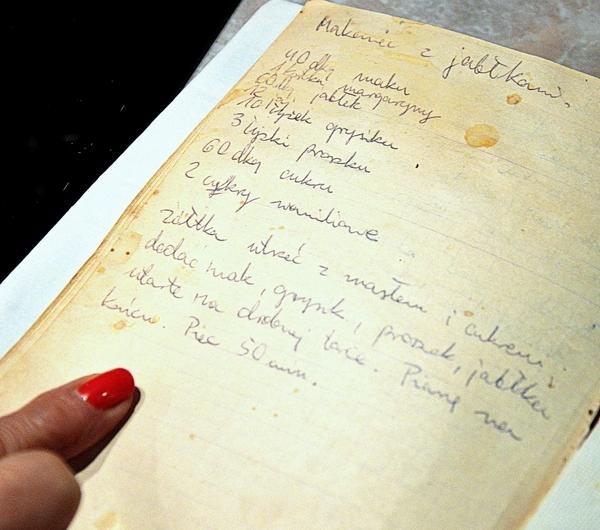 Makowiec z jabłkami.
40 dkg maku
1 kostka margaryny
60 dkg jabłek
12 jaj
10 łyżek grysiku
3 łyżki proszku
60 dkg cukru
2 cukry waniliowe
żółtka utrzeć z masłem i cukrem.
dodać mak, grysik, proszek, jabłka
utarte na drobnej tarce. Pianę na
końcu. Piec 50 min.